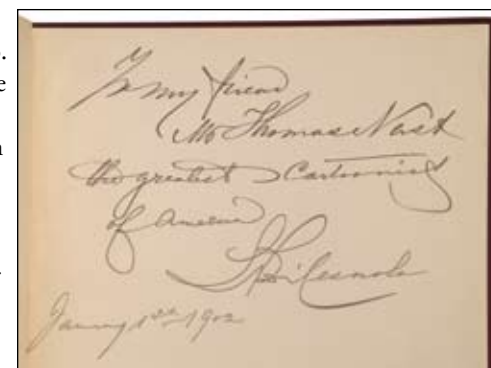 To my friend
Mr Thomas Nast
the greatest Cartoonist
of America
L P di Cesnola
January 1st 1902